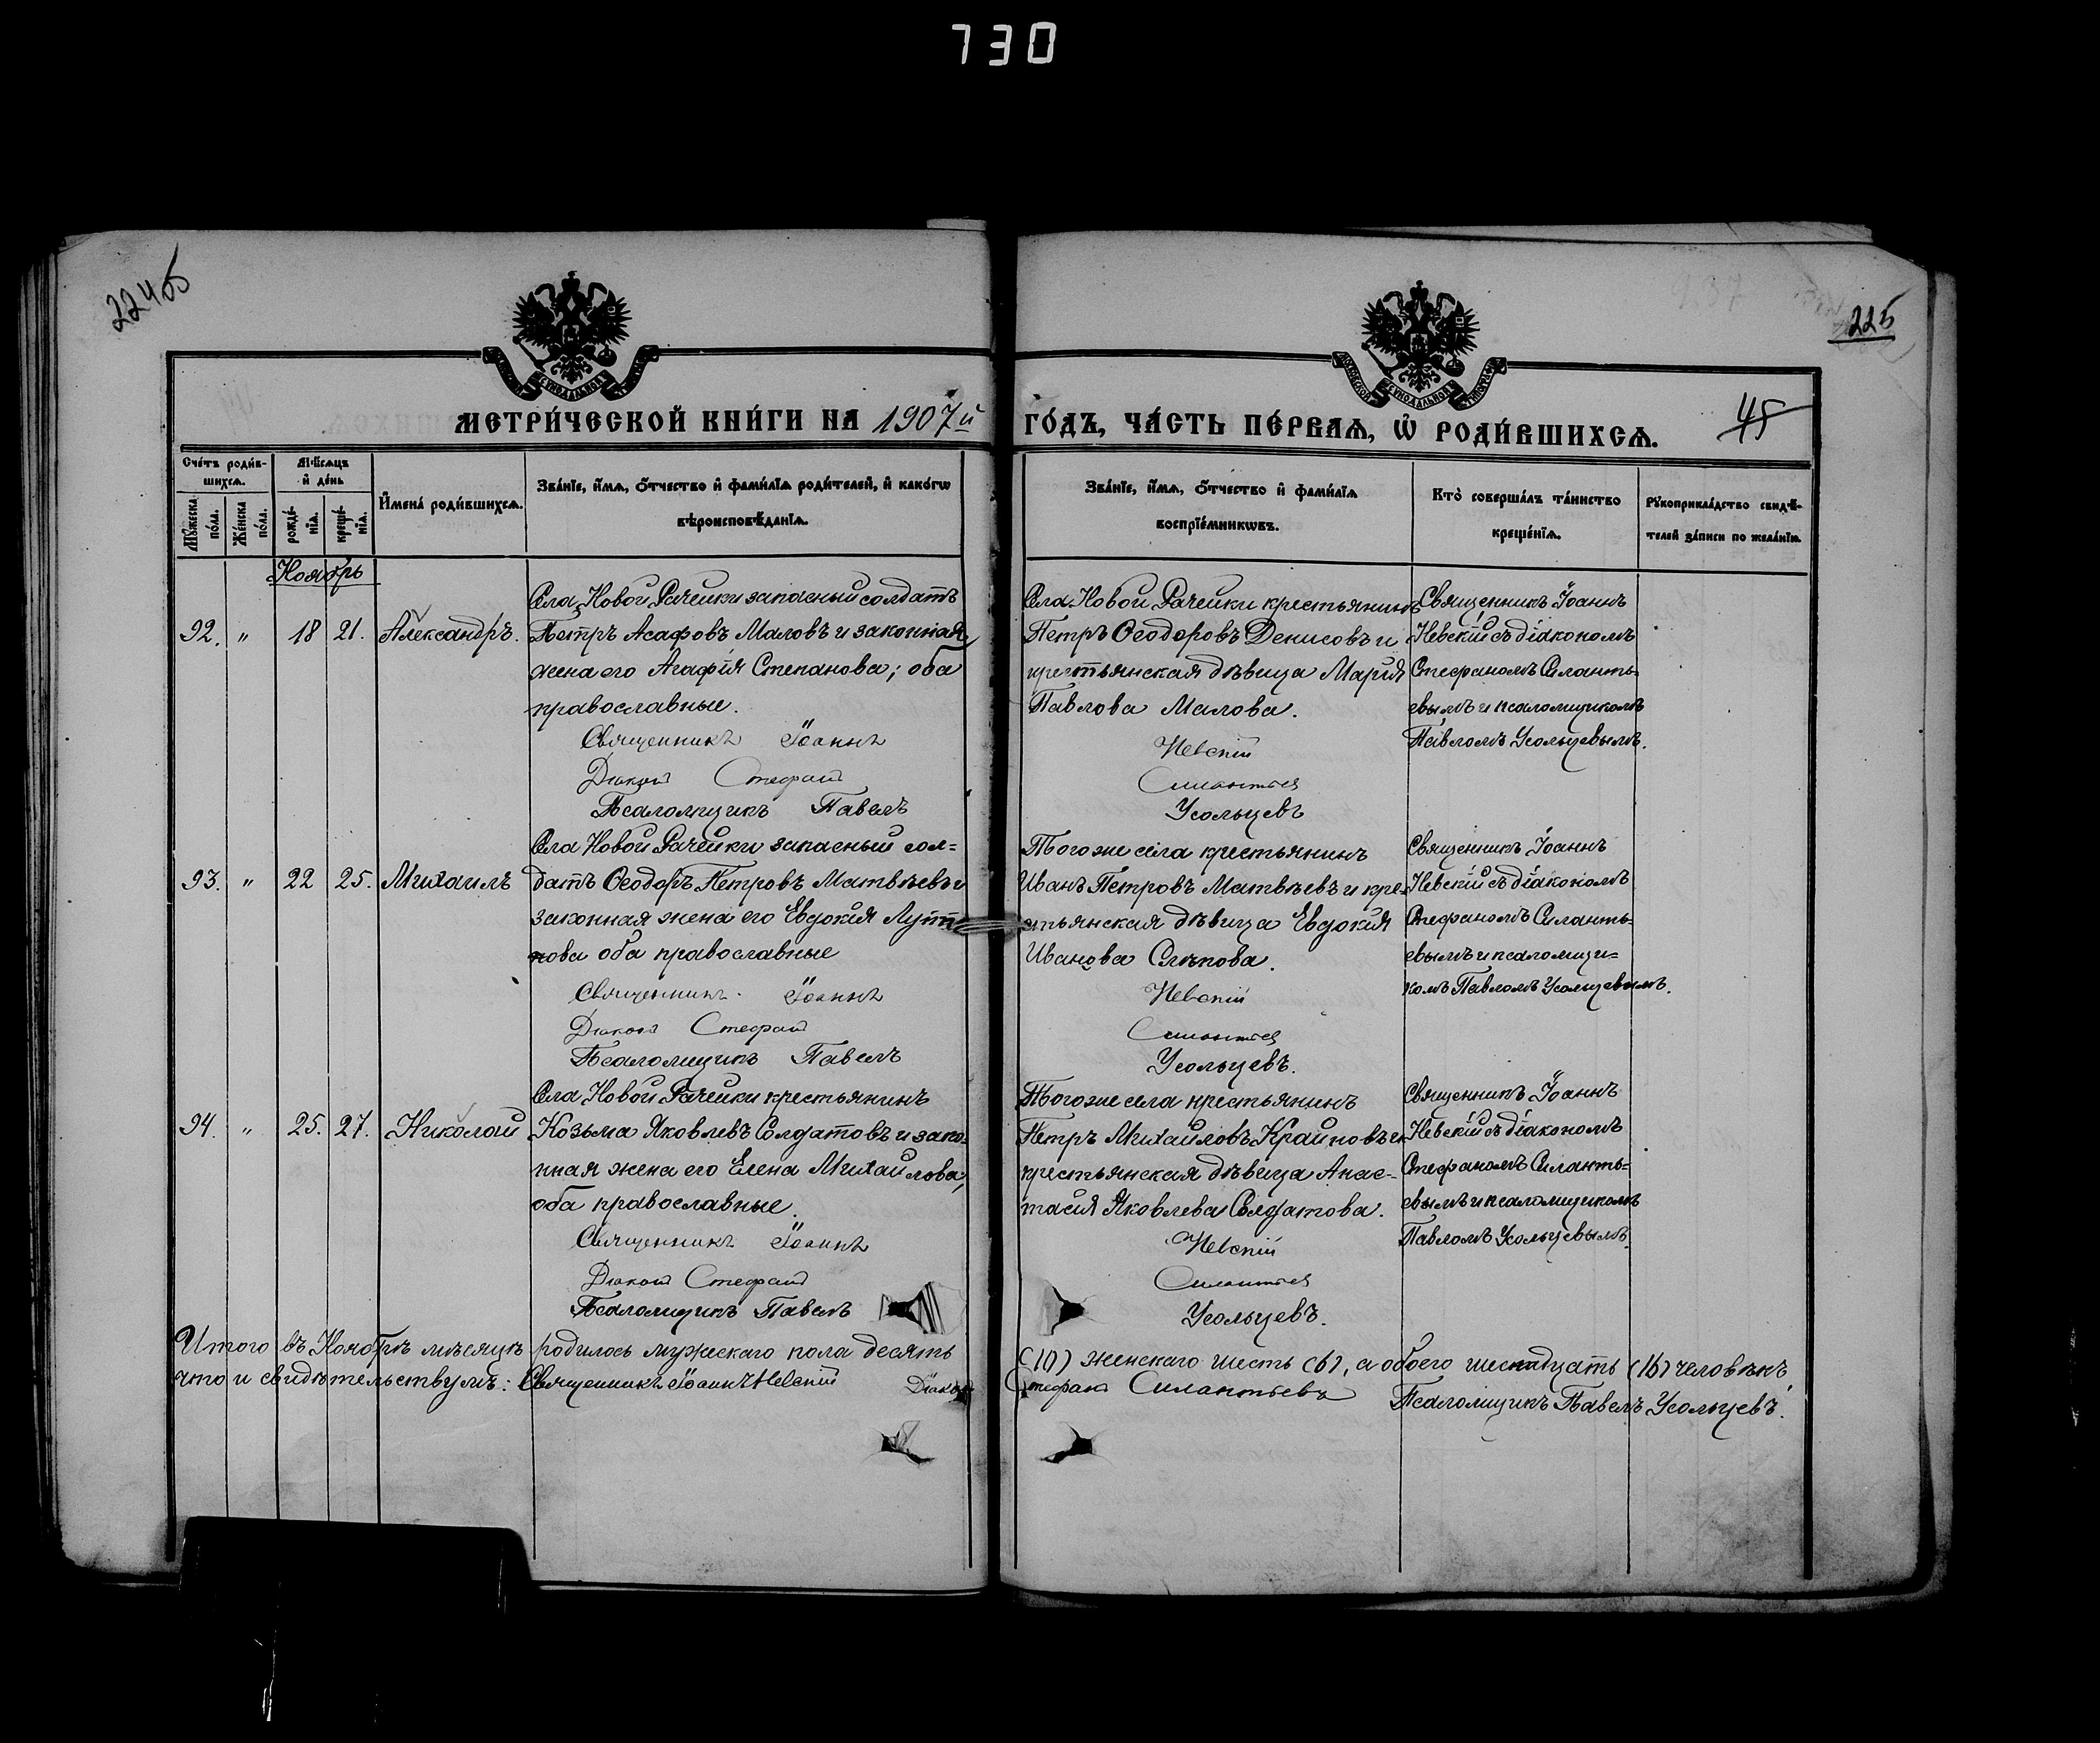 730
224об
225
МЕТРИ́ЧЕСКОЙ КНИ́ГИ НА 1907й ГО́ДЪ, ЧА́СТЬ ПЕ́РВАѦ, Ѡ҆ РОДИ́ВШИХСѦ.
45
Сче́тъ роди́в-
шихсѧ.
Мѣ́сѧцъ
и҆ де́нь
Мꙋ́жеска
по́ла.
Же́нска
по́ла.
рожде́-
нїѧ.
креще́-
нїѧ.
И҆мена̀ роди́вшихсѧ.
Зва́нїе, и҆́мѧ, ѻ҆́тчество и҆ фами́лїѧ роди́телей, и҆ како́гѡ
вѣроисповѣ́данїѧ.
Зва́нїе, и҆́мѧ, ѻ҆́тчество и҆ фами́лїѧ
воспрїе́мникѡвъ.
Кто̀ соверша́лъ та́инство
креще́нїѧ.
Рꙋкоприкла́дство свидѣ́-
телей за́писи по жела́нїю.
Ноябрь
92. " 18 21. Александръ.
Села Новой Рачейки запасный солдатъ
Петръ Асафовъ Маловъ и законная
жена его Агафія Степанова; оба
православные.
Священникъ Іоаннъ Невскій
Діаконъ Стефанъ Силантьев
Псаломщикъ Павелъ Усольцевъ
Села Новой Рачейки крестьянинъ
Петръ Ѳеодоровъ Денисовъ и
крестьянская дѣвица Марія
Павлова Малова.
Священникъ Іоаннъ
Невскій съ діакономъ
Стефаномъ Силанть-
евымъ и псаломщикомъ
Павломъ Усольцевымъ.
93. " 22 25. Михаилъ
Села Новой Рачейки запасный сол-
датъ Ѳеодоръ Петровъ Матвѣевъ и
законная жена его Евдокія
оба православные
Священникъ Іоаннъ Невскій
Діаконъ Стефанъ Силантьев
Псаломщикъ Павелъ Усольцевъ.
Того же села крестьянинъ
Иванъ Петровъ Матвѣевъ и кре-
стьянская дѣвица Евдокія
Иванова Слѣпова.
Священникъ Іоаннъ
Невскій съ діакономъ
Стефаномъ Силанть-
евымъ и псаломщи-
комъ Павломъ Усольцевымъ.
94. " 25. 27. Николай
Села Новой Рачейки крестьянинъ
Козьма Яковлевъ Солдатовъ и зако-
нная жена его Елена Михайлова,
оба православные.
Священникъ Іоаннъ Невскій
Діаконъ Стефанъ Силантьев
Псаломщикъ Павелъ Усольцевъ.
Того же села крестьянинъ
Петръ Михайловъ Крайновъ и
крестьянская дѣвица Анас-
тасія Яковлева Солдатова.
Священникъ Іоаннъ
Невскій съ діакономъ
Стефаномъ Силанть-
евымъ и псаломщикомъ
Павломъ Усольцевымъ.
Итого въ Ноябрѣ мѣсяцѣ родилось мужескаго пола десять (10) женскаго шесть (6), а обоего шестнадцать (16) человѣкъ,
что и свидѣтельствуемъ: Священникъ Іоаннъ Невскій Діаконъ Стефанъ Силантьевъ
Псаломщикъ Павелъ Усольцевъ.